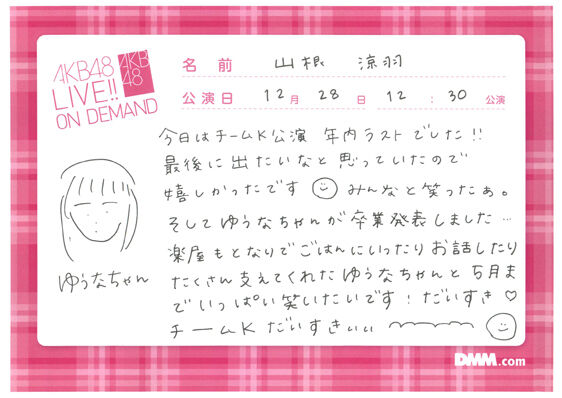 AKB48
LIVE!!
ON DEMAND
AKB
48
名前 山根 涼羽
公演日 12月28日 12:30公演
今日はチームK公演 年内ラストでした!!
最後に出たいなと思っていたので
嬉しかったです みんなと笑ったぁ。
そしてゆうなちゃんが卒業発表しました…
楽屋もとなりでごはんにいったりお話したり
たくさん支えてくれたゆうなちゃんと5月ま
でいっぱい笑いたいです！だいすき♡
チームKだいすきぃぃ
ゆうなちゃん
DMM.com